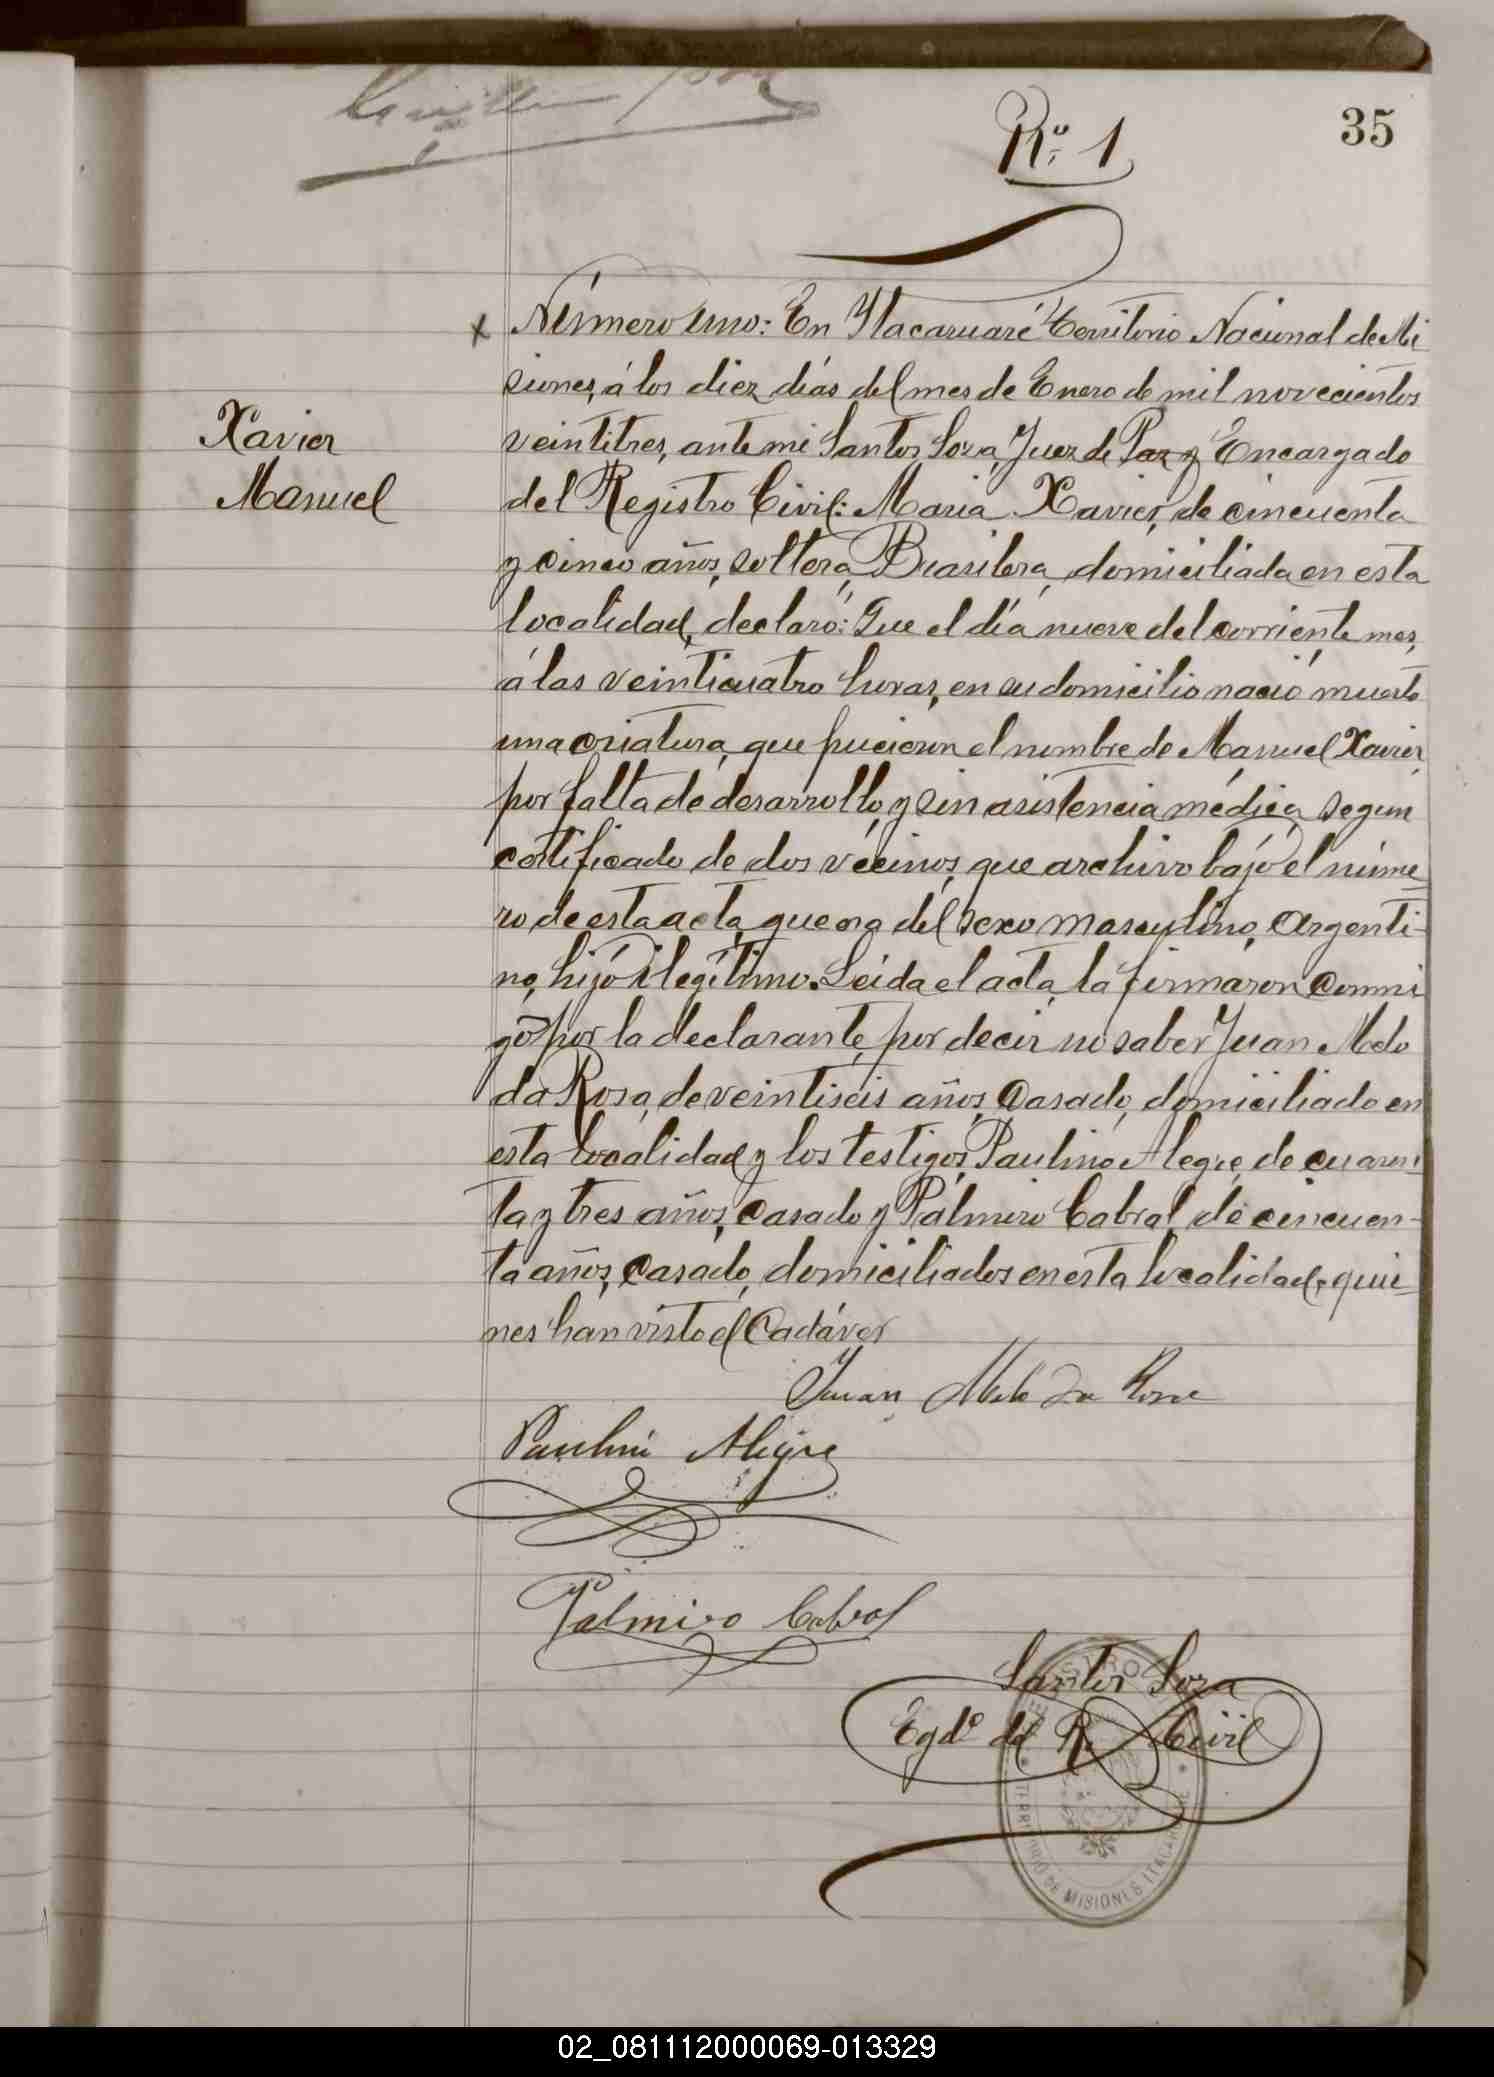 35
Rº. 1
Xavier
Manuel
x Número uno: En Ytacaruaré Territorio Nacional de Mi
siones, á los diez días del mes de Enero de mil novecientos
veintitres, ante mi Santos Soza, Juez de Paz y Encargado
del Registro Civil: Maria Xavier, de cincuenta
y cinco años, soltera, Brasilera, domiciliada en esta
localidad, declaró: Que el día nueve del corriente mes,
á las veinticuatro horas, en su domicilio nació muerto
una criatura, que pucieron el nombre de Manuel Xavier,
por falta de desarrollo, y sin asistencia médica, segun
certificado de dos vecinos, que archivo bajo el núme-
ro de esta acta, que era del sexo masculino, Argenti-
no, hijo ilegítimo. Leida el acta, la firmaron conmi
go por la declarante, por decir no saber Juan Melo
da Rosa, de veintiseis años, casado, domiciliado en
esta localidad y los testigos, Paulino Alegre, de cuaren-
ta y tres años, casado y Palmiro Cabral, de cincuen-
ta años, casado, domiciliados en esta localidad, quie-
nes han visto el Cadáver
Juan Melo da Rosa
Paulino Alegre
Palmiro Cabral
Santos Soza
Egdº. del R. Civil
REGISTRO
TERRITORIO DE MISIONES ITACARUARE
02_081112000069-013329